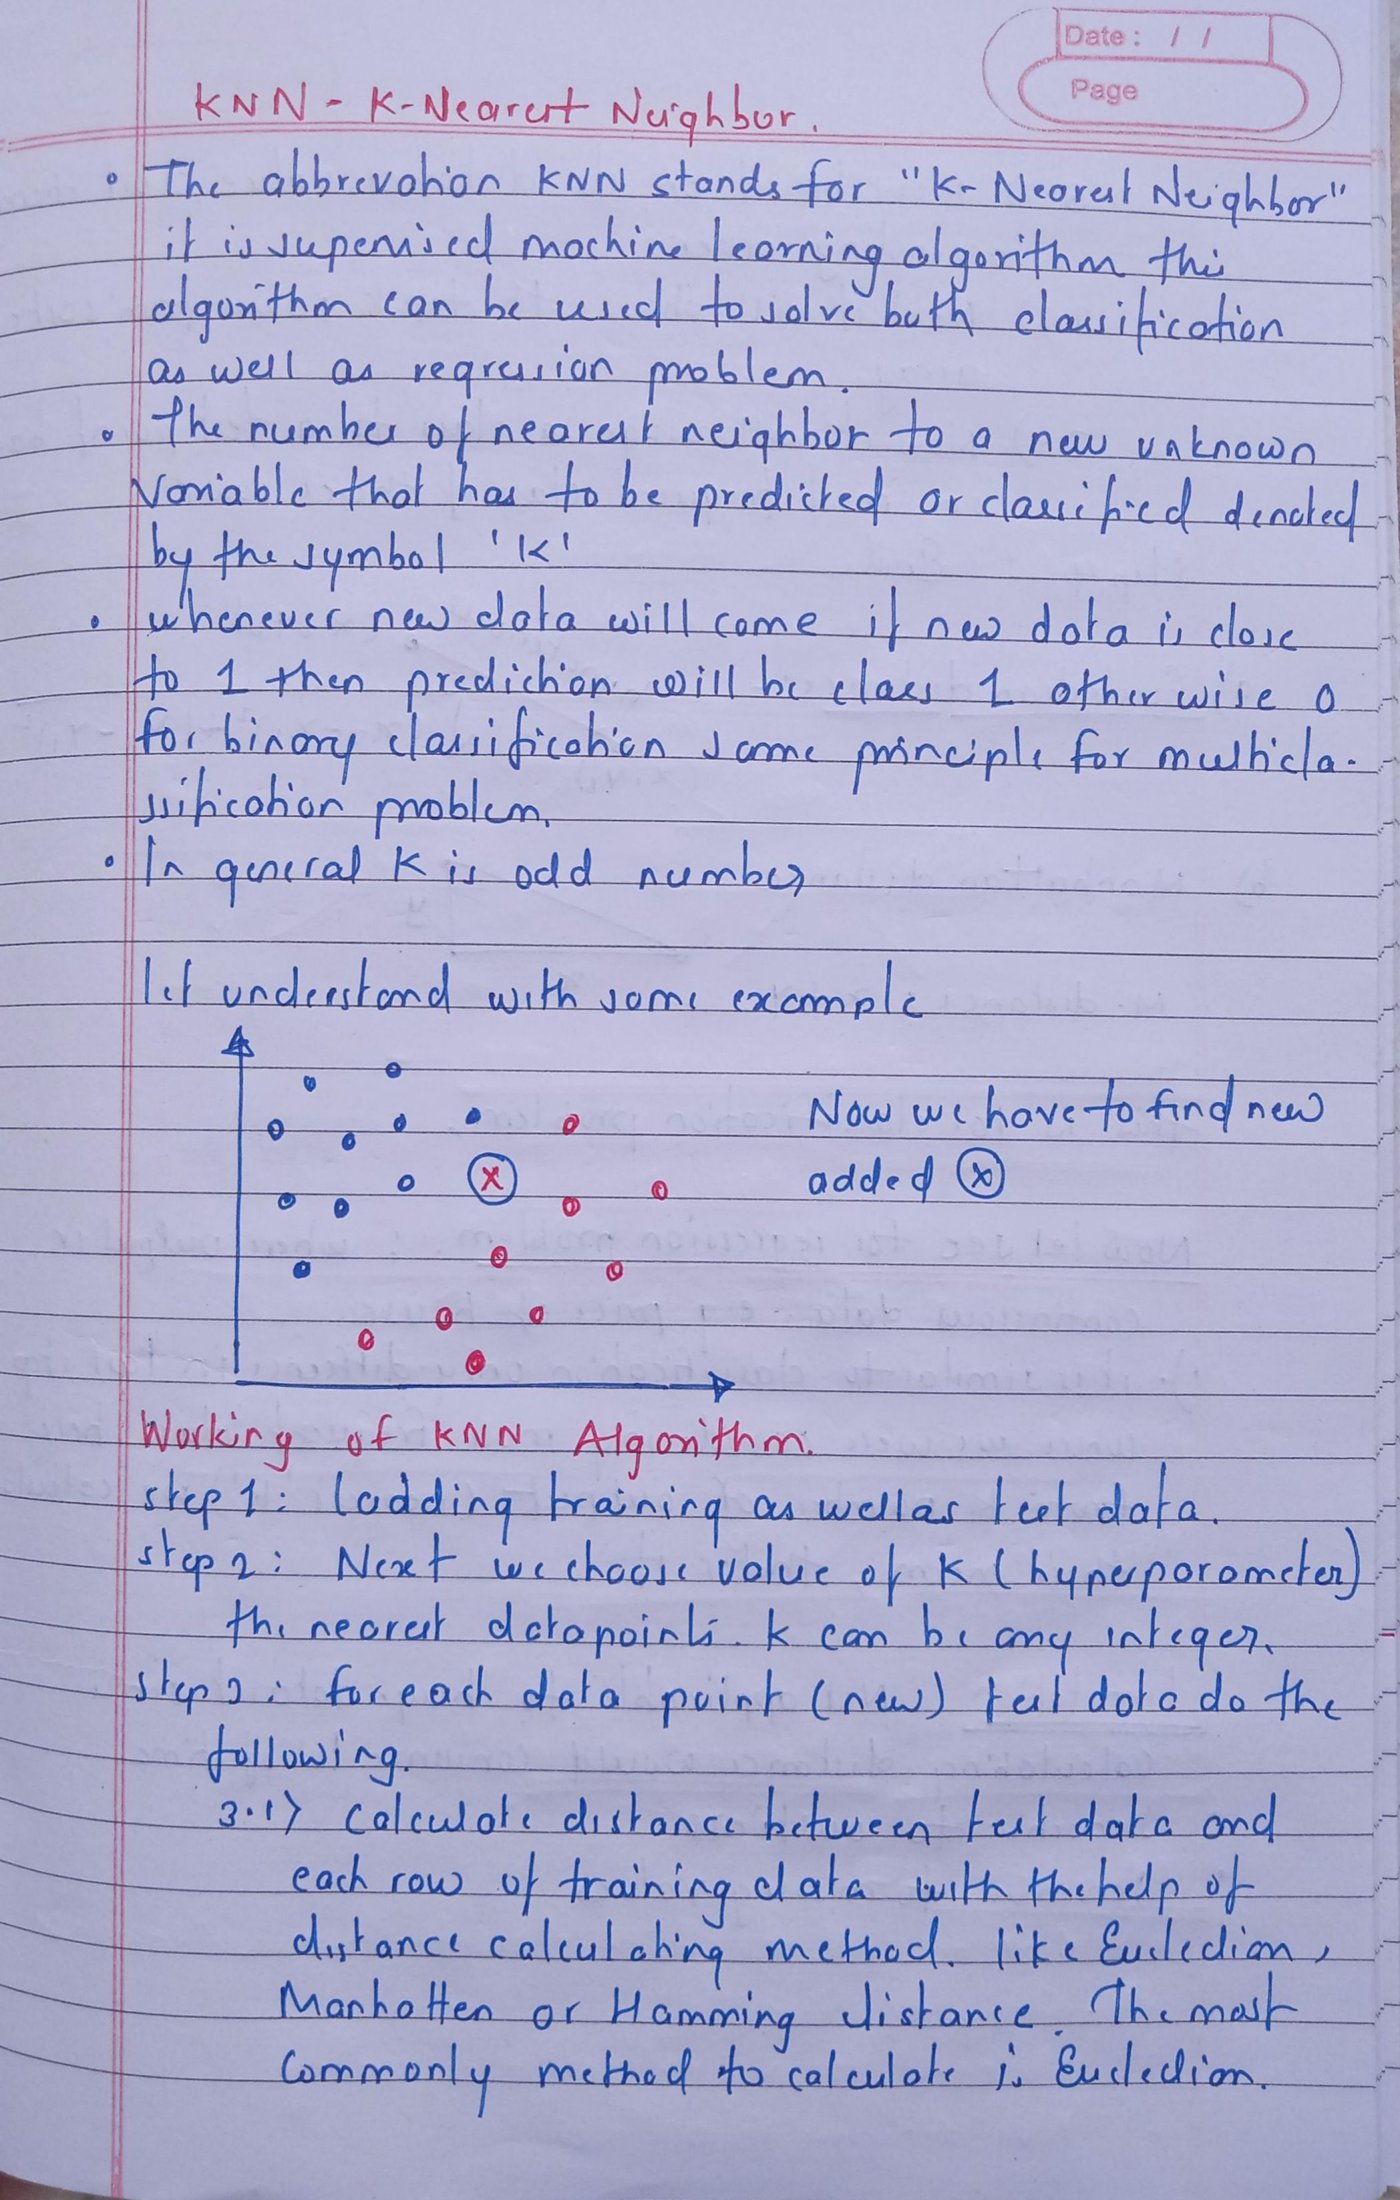 Date : / /
Page
KNN - K-Nearest Neighbor.
• The abbrevation KNN stands for "K- Nearest Neighbor"
it is supervised machine learning algorithm this
algorithm can be used to solve both classification
as well as regression problem.
• The number of nearest neighbor to a new unknown
variable that has to be predicted or classified denoted
by the symbol 'K'
• whenever new data will come if new data is close
to 1 then prediction will be class 1 otherwise 0
for binary classification same principle for multicla-
ssification problem.
• In general K is odd number
let understand with some example
Now we have to find new
x
added x
Working of KNN Algorithm.
step 1: loadding training as well as test data.
step 2: Next we choose value of K (hyperparameter)
the nearest datapoints. K can be any integer.
step 3: for each data point (new) test data do the
following.
3.1> calculate distance between test data and
each row of training data with the help of
distance calculating method. like Eucledian,
Manhatten or Hamming distance. The most
commonly method to calculate is Eucledian.